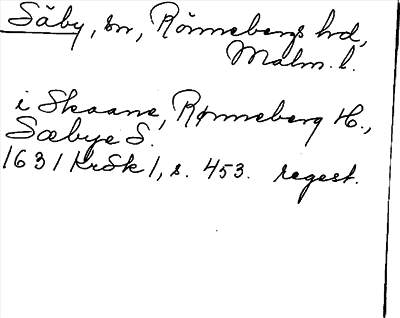 Säby, sn, Rönnebergs hd,
Malm. l.
i Skaane, Rønneberg H.,
Sæbye S.
1631 KrSk 1, s. 453. regest.